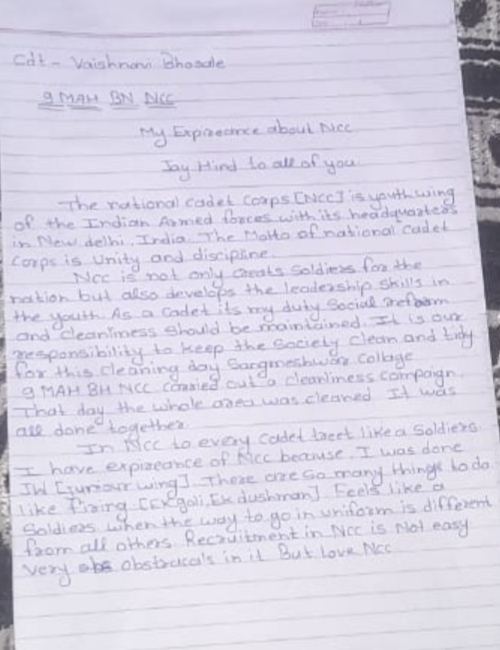 Cdt - Vaishnavi Bhosale
9 MAH BN NCC
My Expireance about Ncc
Jay Hind to all of you
The national cadet corps [NCC] is youth wing
of the Indian Armed forces with its headquarters
in New delhi, India. The Motto of national cadet
corps is Unity and discipline.
Ncc is not only creats Soldiers for the
nation but also develops the leadership skills in
the youth. As a cadet its my duty Social reform
and cleanliness should be maintained. It is our
responsibility to keep the Society clean and tidy
for this cleaning day Sangmeshwar Collage
9 MAH BH NCC carried out a cleanliness campaign.
That day the whole area was cleaned It was
all done together
In Ncc to every cadet treet like a Soldiers.
I have expireance of Ncc because. I was done
JW [juniour wing]. There are so many things to do
like firing [Ek goli, Ek dushman] Feels like a
Soldiers when the way to go in uniform is different
from all others. Recruitment in Ncc is Not easy
very obstracals in it But love Ncc